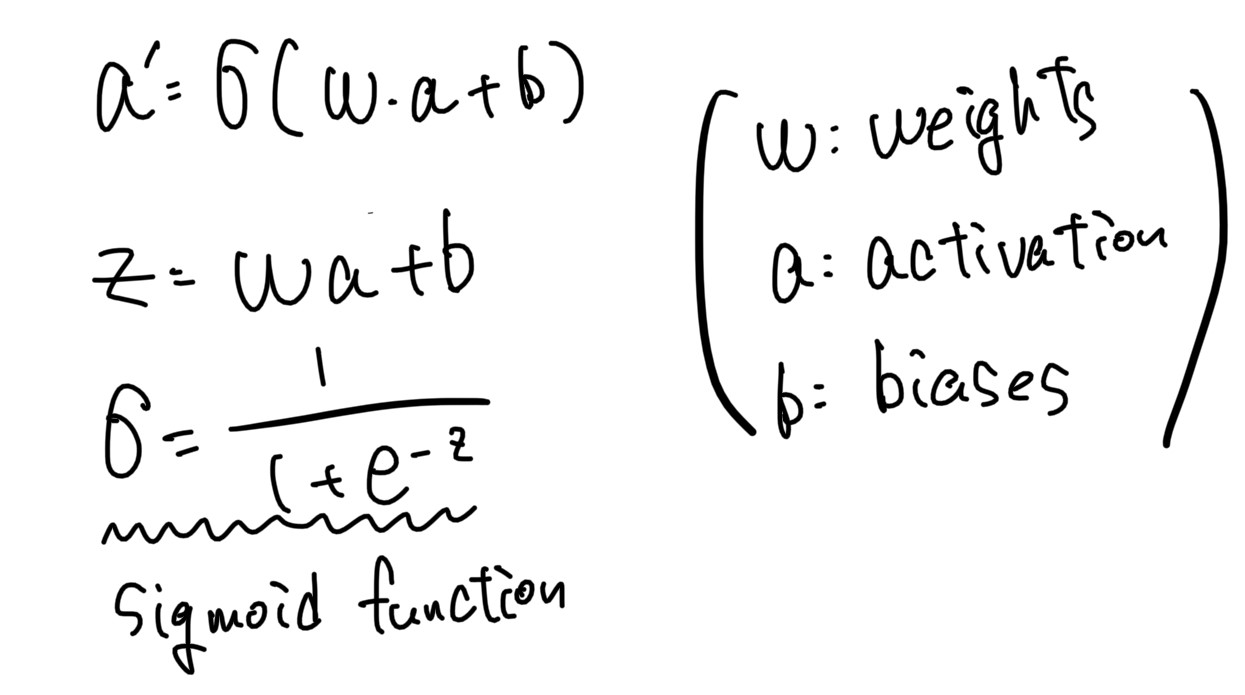 a′ = σ(w·a+b)
z = wa+b
σ = 1/(1+e^-z)
sigmoid function
w: weights
a: activation
b: biases